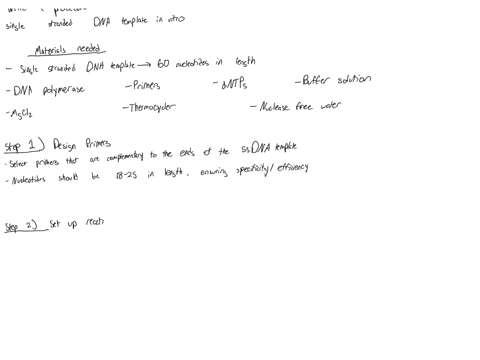 single stranded DNA template in vitro
Materials needed
- Single stranded DNA template → 60 nucleotides in length
- DNA polymerase - Primers - dNTPs - Buffer solution
- MgCl2 - Thermocycler - Nuclease free water
Step 1) Design Primers
- Select primers that are complementary to the ends of the ssDNA template
- Nucleotides should be 18-25 in length, ensuring specificity/efficiency
Step 2) Set up reacti